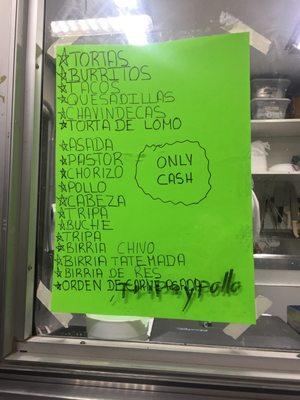 ☆TORTAS
☆BURRITOS
☆TACOS
☆QUESADILLAS
☆CHAVINDECAS
☆TORTA DE LOMO
☆ASADA
☆PASTOR
☆CHORIZO
☆POLLO
☆CABEZA
☆TRIPA
☆BUCHE
☆TRIPA
☆BIRRIA CHIVO
☆BIRRIA TATEMADA
☆BIRRIA DE RES
☆ORDEN DE CARNE ASADA
y Pollo
ONLY
CASH